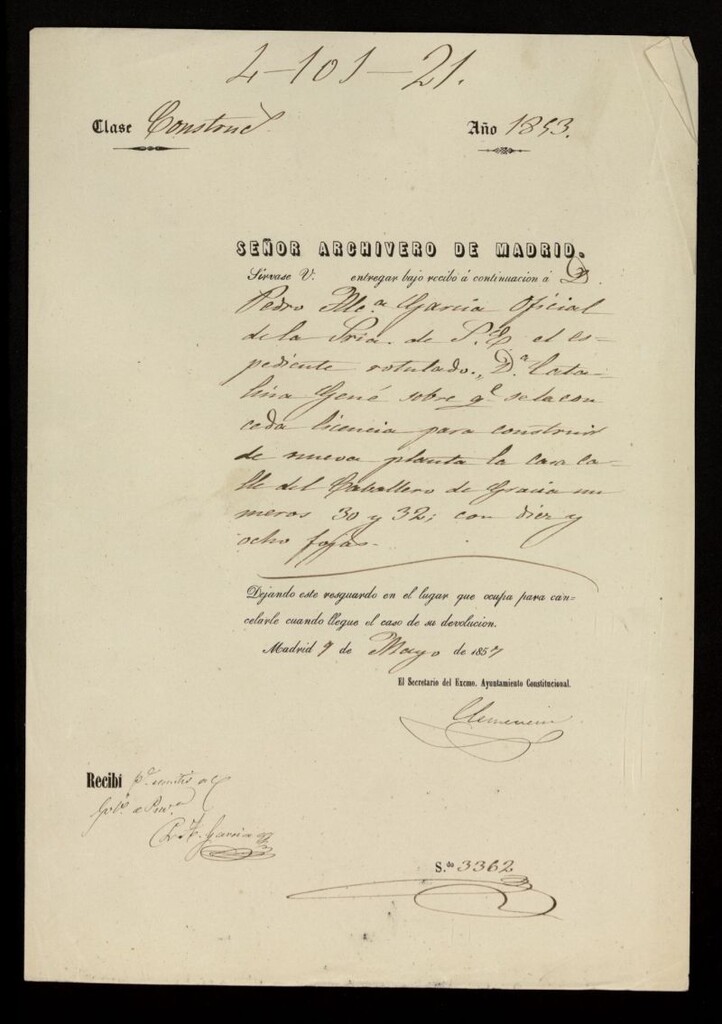 4-101-21.
Clase Construc.
Año 1853.
SEÑOR ARCHIVERO DE MADRID.
Sírvase V. entregar bajo recibo á continuacion á D.
Pedro M.ª García Oficial
de la Sria. de S. E. el es-
pediente rotulado "D.ª Cata-
lina Gené sobre q.e se la con
ceda licencia para construir
de nueva planta la casa ca-
lle del Caballero de Gracia nu
meros 30 y 32; con diez y
ocho fojas.
Dejando este resguardo en el lugar que ocupa para can-
celarle cuando llegue el caso de su devolucion.
Madrid 7 de Mayo de 1857
El Secretario del Excmo. Ayuntamiento Constitucional.
Clemencin
Recibí p.a remitir al
Gob.o de Prov.a
P. M. García
S.da 3362